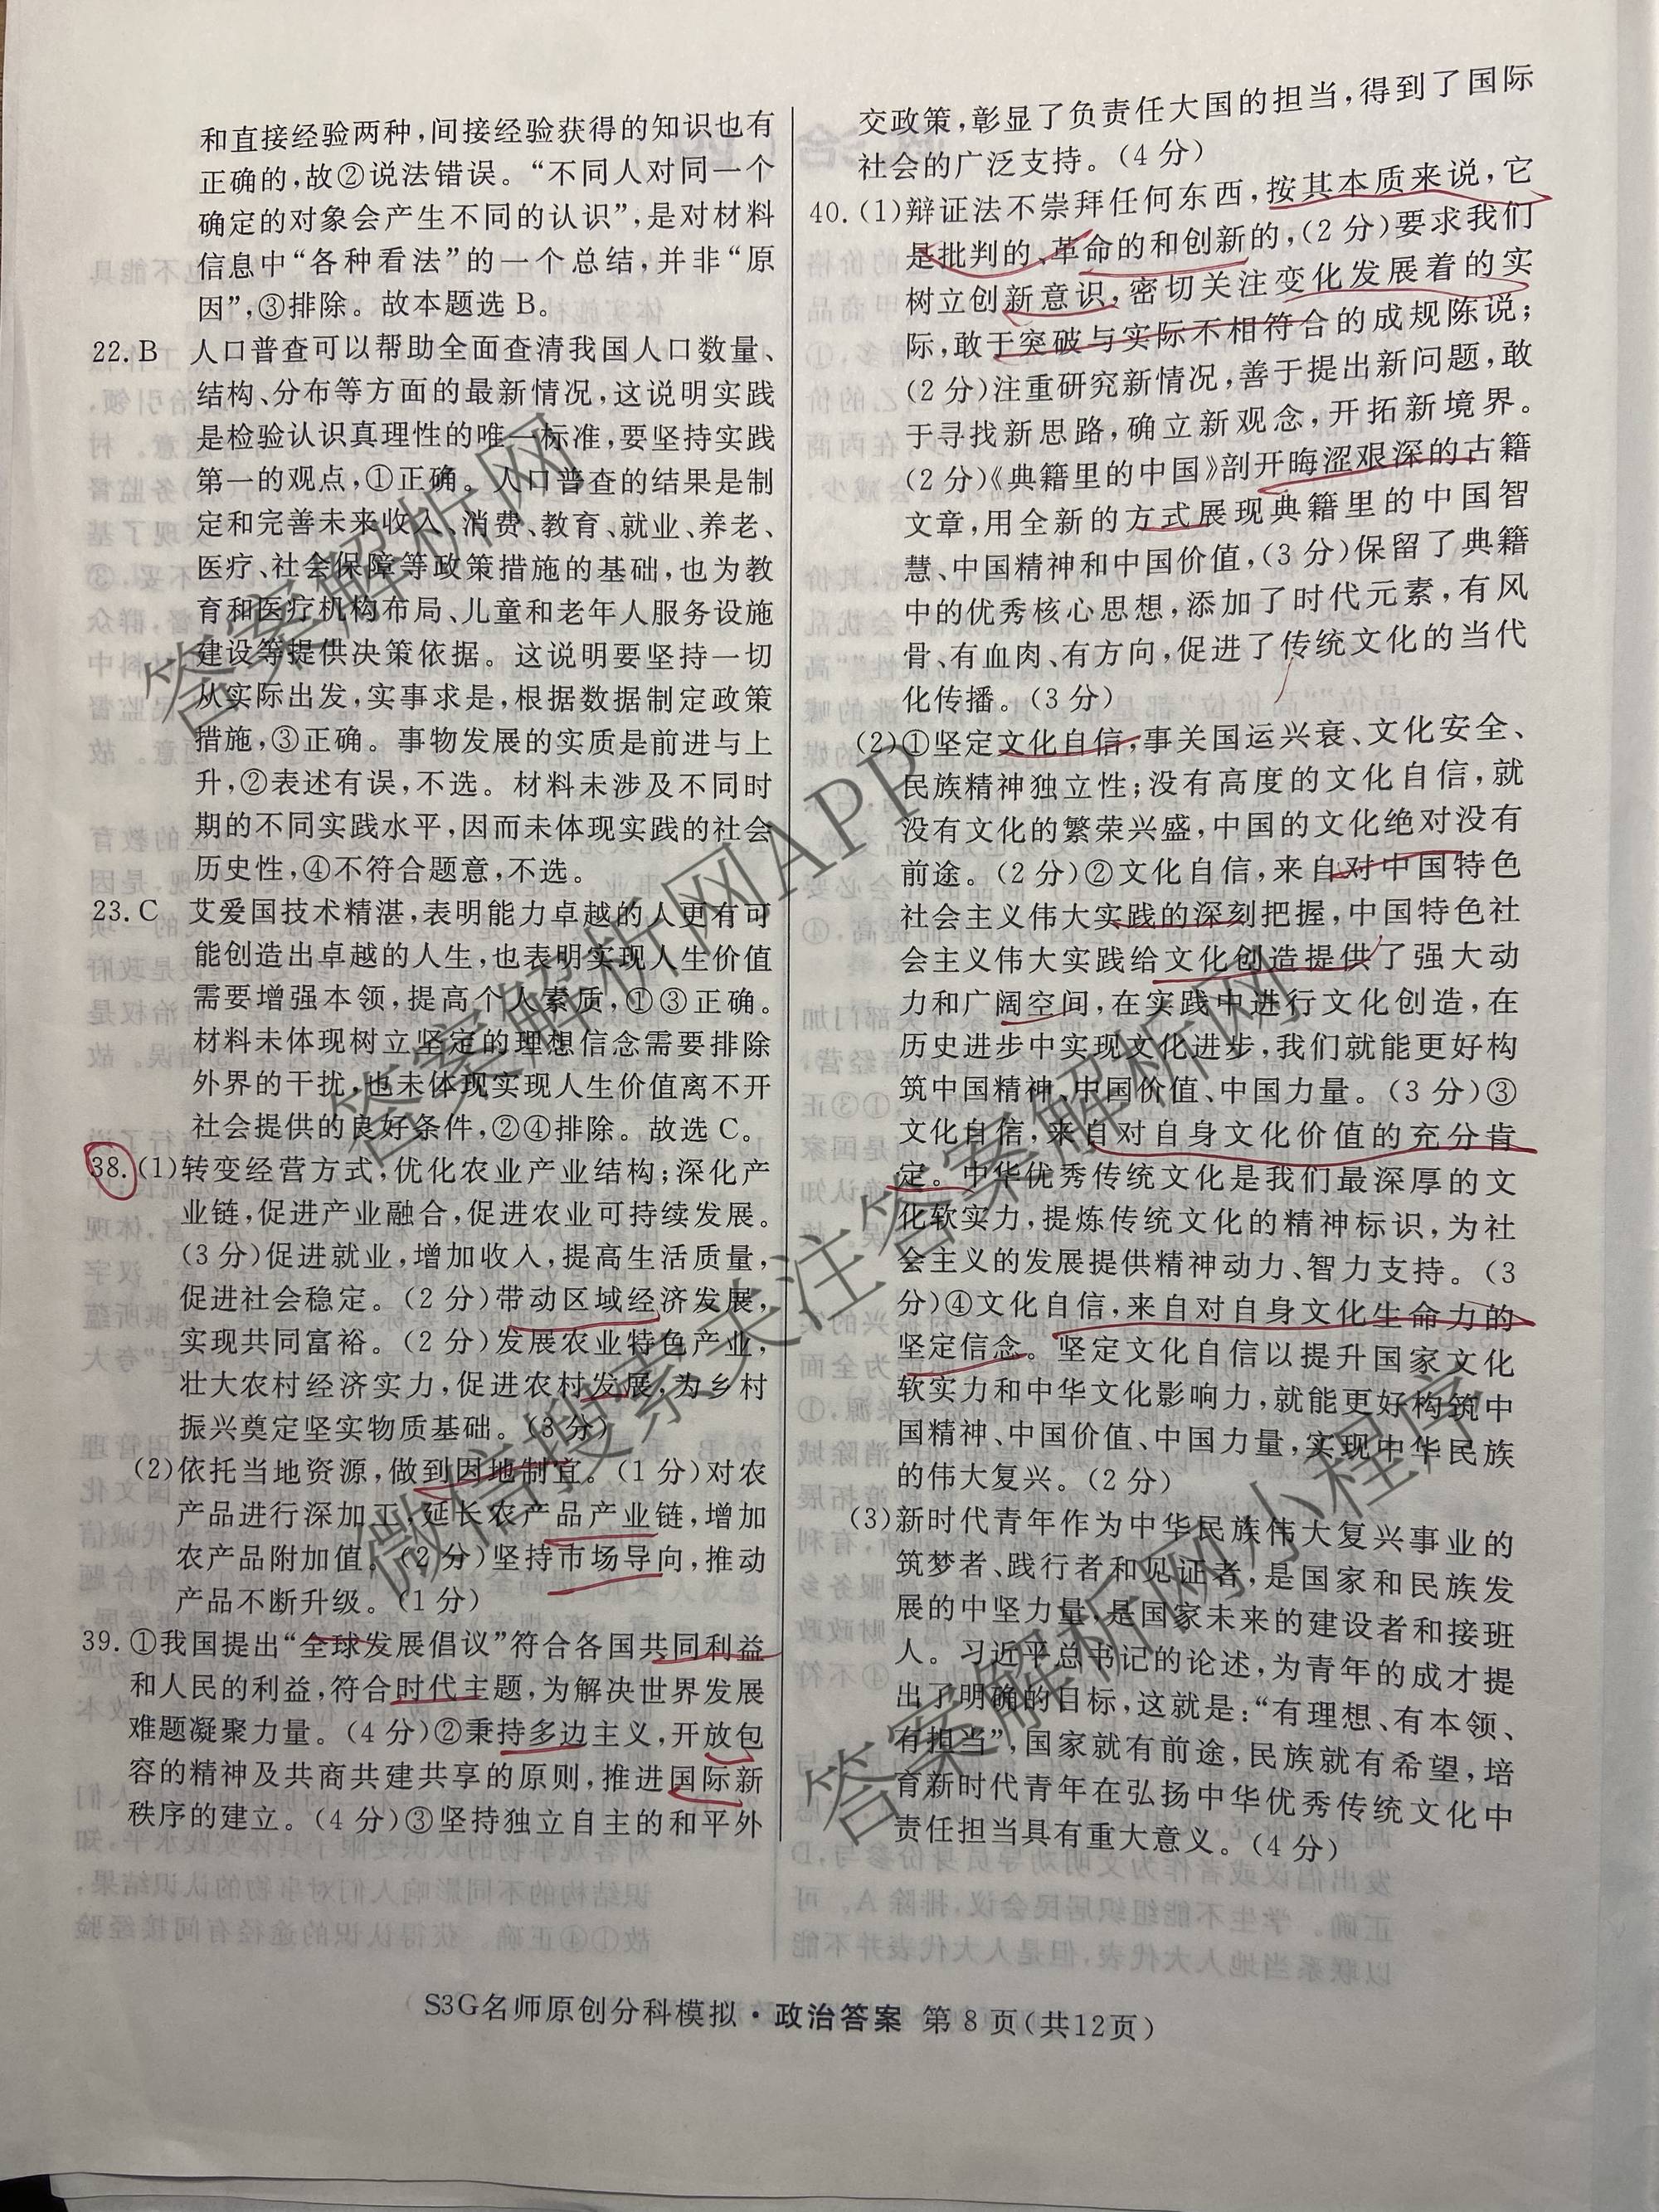 和直接经验两种，间接经验获得的知识也有
正确的，故②说法错误。“不同人对同一个
确定的对象会产生不同的认识”，是对材料
信息中“各种看法”的一个总结，并非“原
因”，③排除。故本题选 B。
22. B 人口普查可以帮助全面查清我国人口数量、
结构、分布等方面的最新情况，这说明实践
是检验认识真理性的唯一标准，要坚持实践
第一的观点，①正确。人口普查的结果是制
定和完善未来收入、消费、教育、就业、养老、
医疗、社会保障等政策措施的基础，也为教
育和医疗机构布局、儿童和老年人服务设施
建设等提供决策依据。这说明要坚持一切
从实际出发，实事求是，根据数据制定政策
措施，③正确。事物发展的实质是前进与上
升，②表述有误，不选。材料未涉及不同时
期的不同实践水平，因而未体现实践的社会
历史性，④不符合题意，不选。
23. C 艾爱国技术精湛，表明能力卓越的人更有可
能创造出卓越的人生，也表明实现人生价值
需要增强本领，提高个人素质，①③正确。
材料未体现树立坚定的理想信念需要排除
外界的干扰，也未体现实现人生价值离不开
社会提供的良好条件，②④排除。故选 C。
38. (1)转变经营方式，优化农业产业结构；深化产
业链，促进产业融合，促进农业可持续发展。
(3 分)促进就业，增加收入，提高生活质量，
促进社会稳定。(2 分)带动区域经济发展，
实现共同富裕。(2 分)发展农业特色产业，
壮大农村经济实力，促进农村发展，为乡村
振兴奠定坚实物质基础。(3 分)
(2)依托当地资源，做到因地制宜。(1 分)对农
产品进行深加工，延长农产品产业链，增加
农产品附加值。(2 分)坚持市场导向，推动
产品不断升级。(1 分)
39. ①我国提出“全球发展倡议”符合各国共同利益
和人民的利益，符合时代主题，为解决世界发展
难题凝聚力量。(4 分)②秉持多边主义，开放包
容的精神及共商共建共享的原则，推进国际新
秩序的建立。(4 分)③坚持独立自主的和平外
交政策，彰显了负责任大国的担当，得到了国际
社会的广泛支持。(4 分)
40. (1)辩证法不崇拜任何东西，按其本质来说，它
是批判的、革命的和创新的，(2 分)要求我们
树立创新意识，密切关注变化发展着的实
际，敢于突破与实际不相符合的成规陈说；
(2 分)注重研究新情况，善于提出新问题，敢
于寻找新思路，确立新观念，开拓新境界。
(2 分)《典籍里的中国》剖开晦涩艰深的古籍
文章，用全新的方式展现典籍里的中国智
慧、中国精神和中国价值，(3 分)保留了典籍
中的优秀核心思想，添加了时代元素，有风
骨、有血肉、有方向，促进了传统文化的当代
化传播。(3 分)
(2)①坚定文化自信，事关国运兴衰、文化安全、
民族精神独立性；没有高度的文化自信，就
没有文化的繁荣兴盛，中国的文化绝对没有
前途。(2 分)②文化自信，来自对中国特色
社会主义伟大实践的深刻把握，中国特色社
会主义伟大实践给文化创造提供了强大动
力和广阔空间，在实践中进行文化创造，在
历史进步中实现文化进步，我们就能更好构
筑中国精神、中国价值、中国力量。(3 分)③
文化自信，来自对自身文化价值的充分肯
定。中华优秀传统文化是我们最深厚的文
化软实力，提炼传统文化的精神标识，为社
会主义的发展提供精神动力、智力支持。(3
分)④文化自信，来自对自身文化生命力的
坚定信念。坚定文化自信以提升国家文化
软实力和中华文化影响力，就能更好构筑中
国精神、中国价值、中国力量，实现中华民族
的伟大复兴。(2 分)
(3)新时代青年作为中华民族伟大复兴事业的
筑梦者、践行者和见证者，是国家和民族发
展的中坚力量，是国家未来的建设者和接班
人。习近平总书记的论述，为青年的成才提
出了明确的目标，这就是：“有理想、有本领、
有担当”，国家就有前途，民族就有希望，培
育新时代青年在弘扬中华优秀传统文化中
责任担当具有重大意义。(4 分)
S3G名师原创分科模拟·政治答案 第 8 页(共12页)
答案解析网
答案解析网APP
微信搜索关注答案解析网
答案解析网小程序